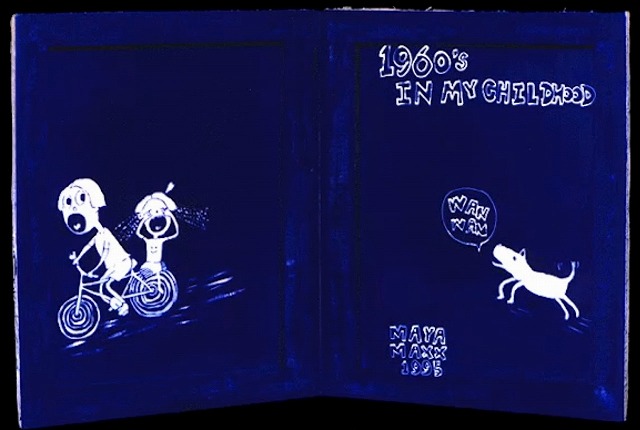 1960's
IN MY CHILDHOOD
WAN
WAN
MAYA
MAXX
1995